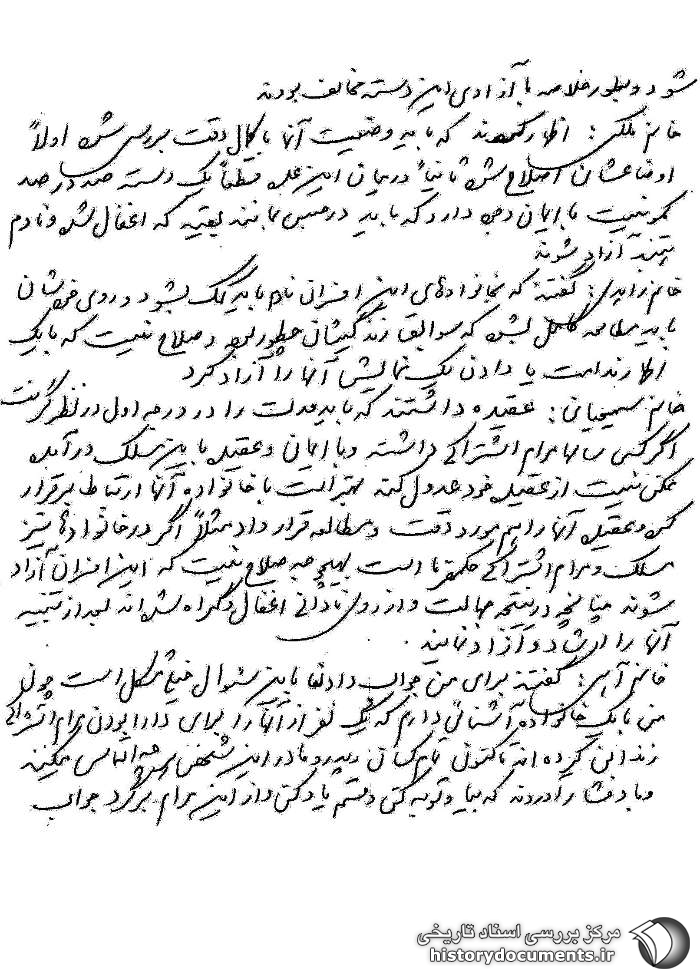 شود و بطور خلاصه با آزادی این دسته مخالف بودند
خانم ملکی : اظهار کردند که باید وضعیت آنها با کمال دقت بررسی شده اولاً
اوضاعشان اصلاح شده ثانیاً در میان این عده قطعاً یک دسته صد در صد
کمونیست با ایمان وجود دارد که باید در حبس بمانند بقیه که اغفال شده و نادم
هستند آزاد شوند
گفتند که بخانواده‌های این افسران نادم باید کمک بشود و روی خودشان
باید مطالعه کامل بشود که سوابق زندگیشان چطور بوده و صلاح نیست که با یک
اظهار ندامت یا دادن یک نمایش آنها را آزاد کرد
خانم مسیحیانی : عقیده داشتند که باید مدت را در درجه اول در نظر گرفت
اگر کسی سالها مرام اشتراکی داشته و با ایمان و عقیده باین مسلک درآمده
ممکن نیست از عقیده خود عدول کند بهتر است با خانواده آنها ارتباط برقرار
کرده و عقیده آنها را هم مورد دقت و مطالعه قرار داد مثلاً اگر در خانواده نیز
مسلک و مرام اشتراکی حکمفرما است بهیچوجه صلاح نیست که این افسران آزاد
شوند چنانچه در نتیجه جهالت و از روی نادانی اغفال و گمراه شده‌اند بعد از تنبیه
آنها را ارشاد و آزاد نمایند .
خانم گفتند برای من جواب دادن باین سئوال خیلی مشکل است چون
من با یک خانواده آشنائی دارم که یک نفر از آنها را برای دارا بودن مرام اشتراکی
زندانی کرده‌اند تاکنون تمام کسان و پدر و مادر این شخص هر چه التماس میکنند
و با و فشار آوردند که بیا و توبه کن و قسم یاد کن و از این مرام برگرد جواب
مرکز بررسی اسناد تاریخی
historydocuments.ir